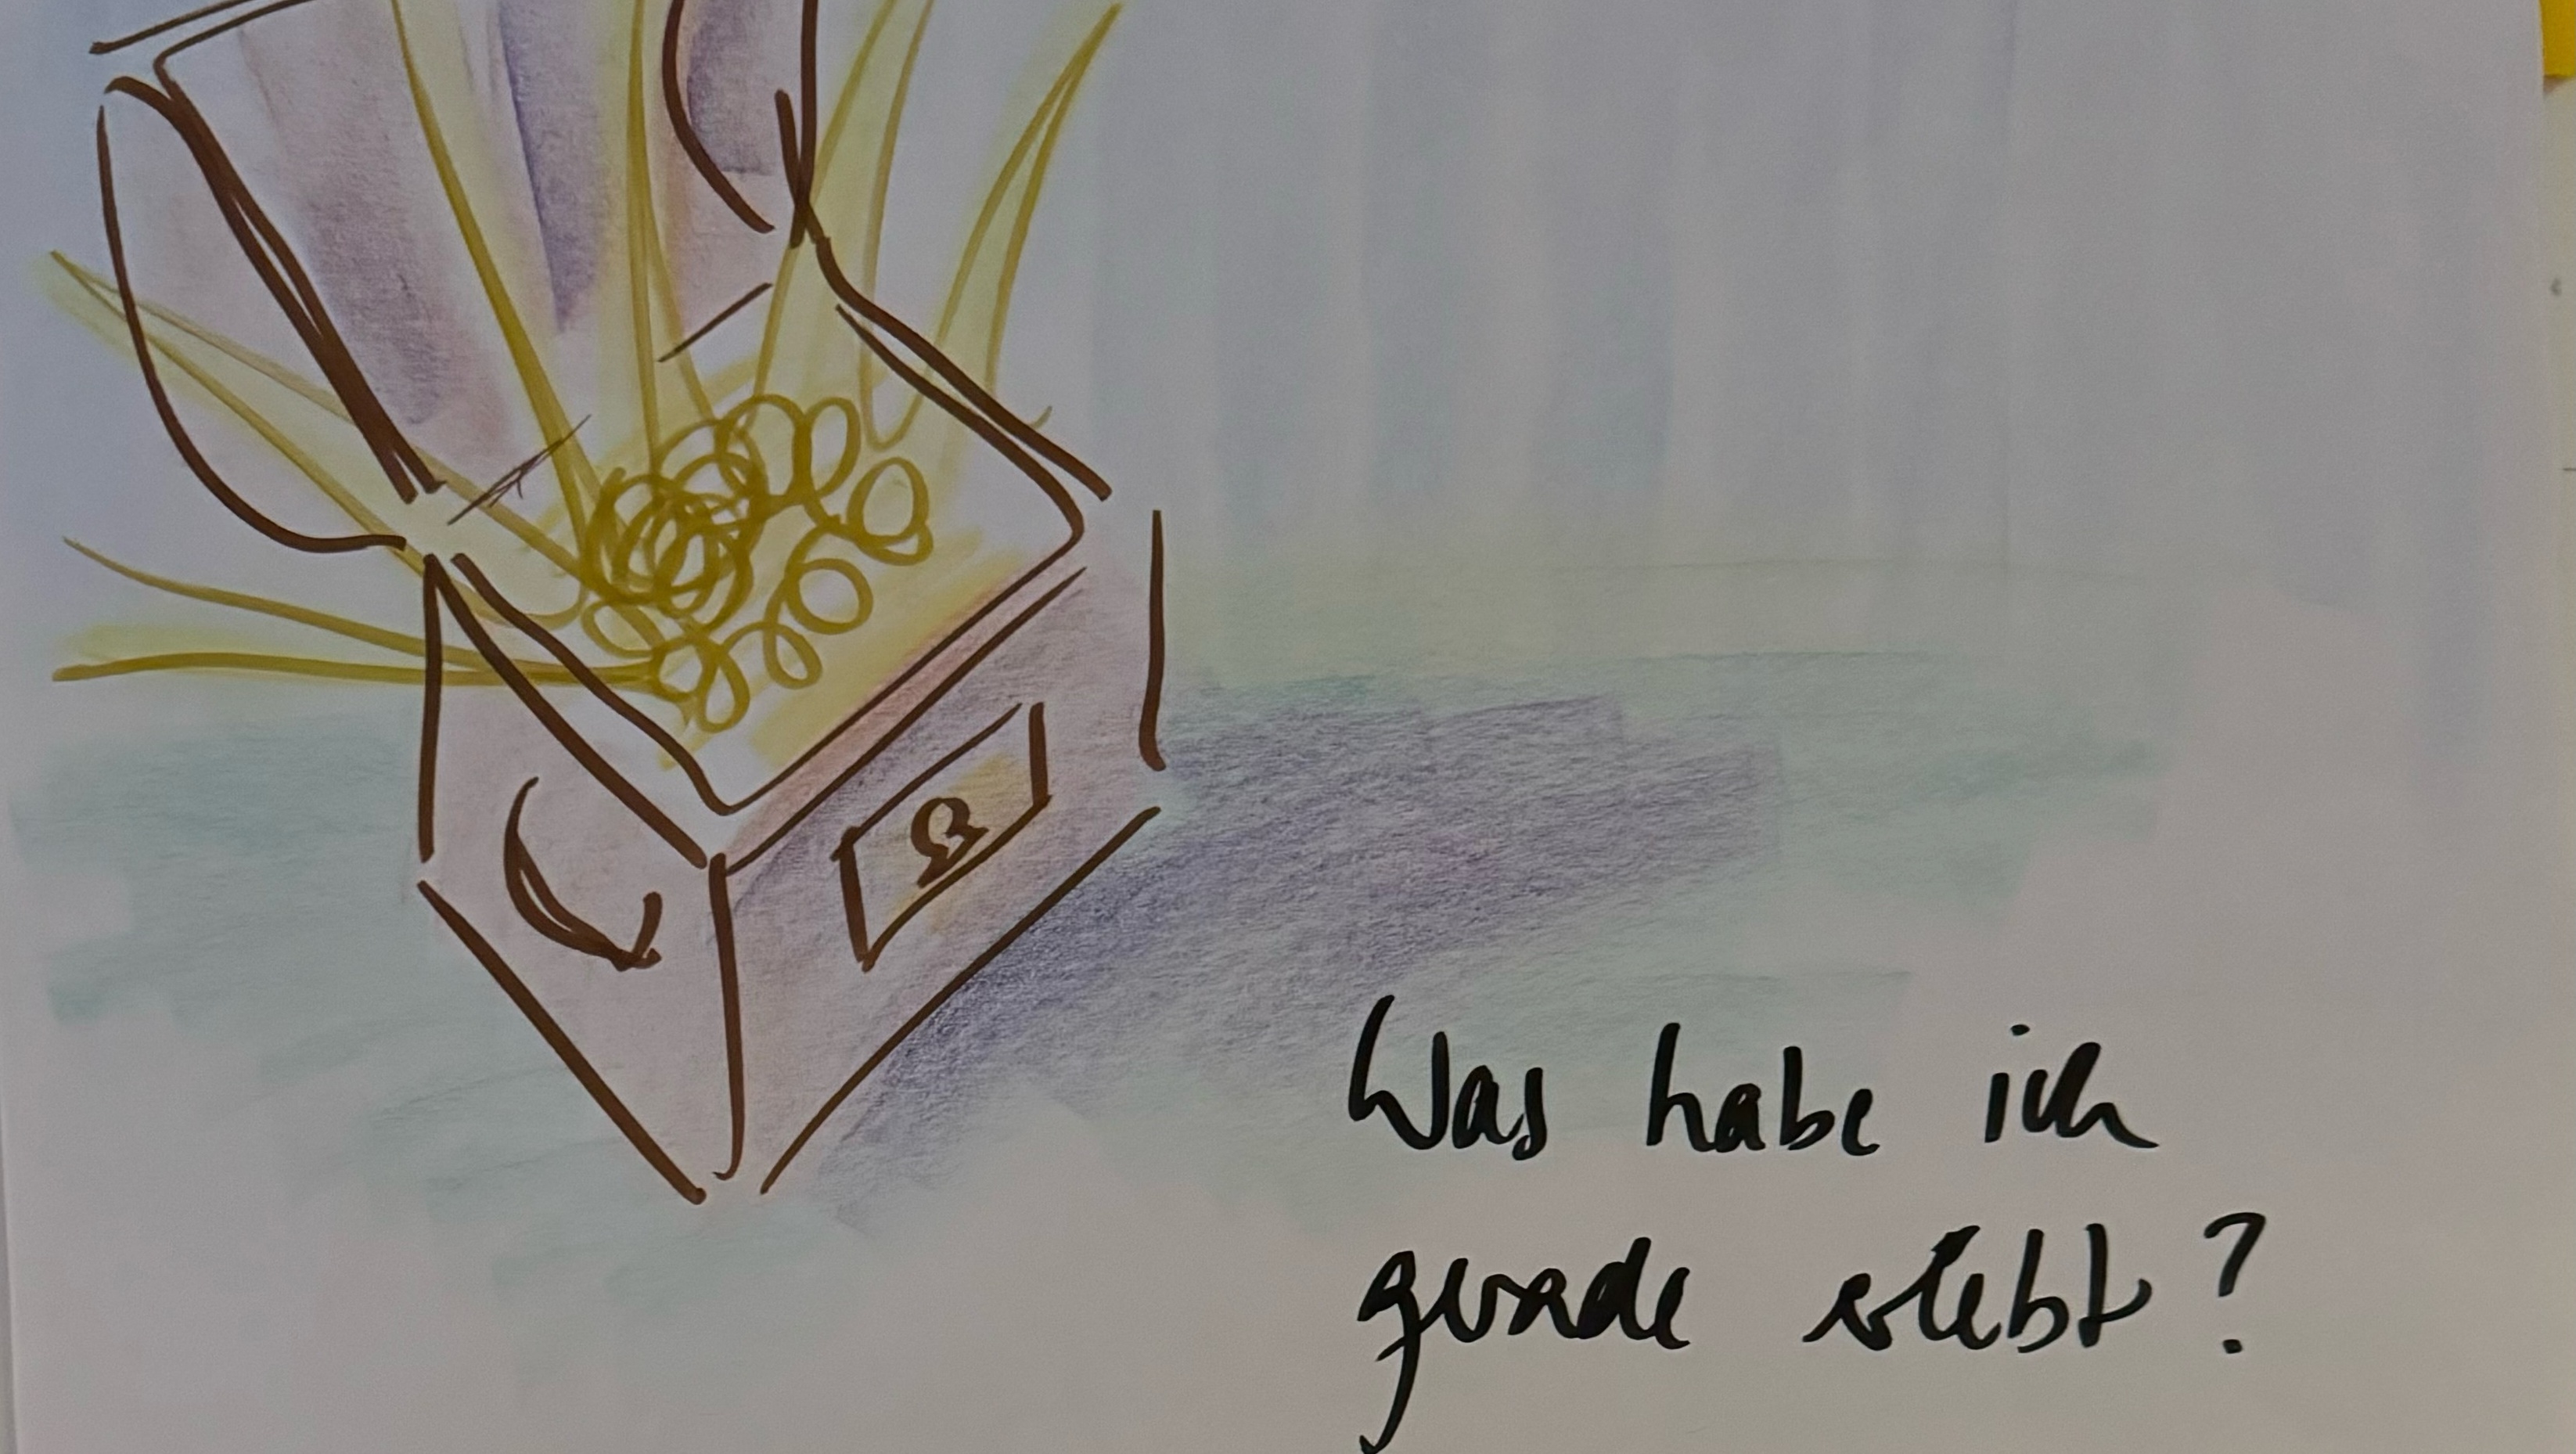 Was habe ich
gerade erlebt?